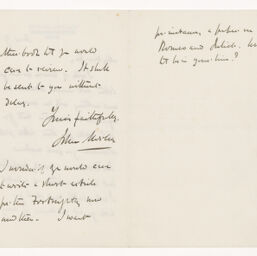 other book that you would
care to review. It shall
be sent to you without
delay.
Yours faithfully,
John Morley
I wonder if you would care
to write a short article
for the Fortnightly now
and then. I want
for instance, a paper on
Romeo and Juliet.
to be in your line?